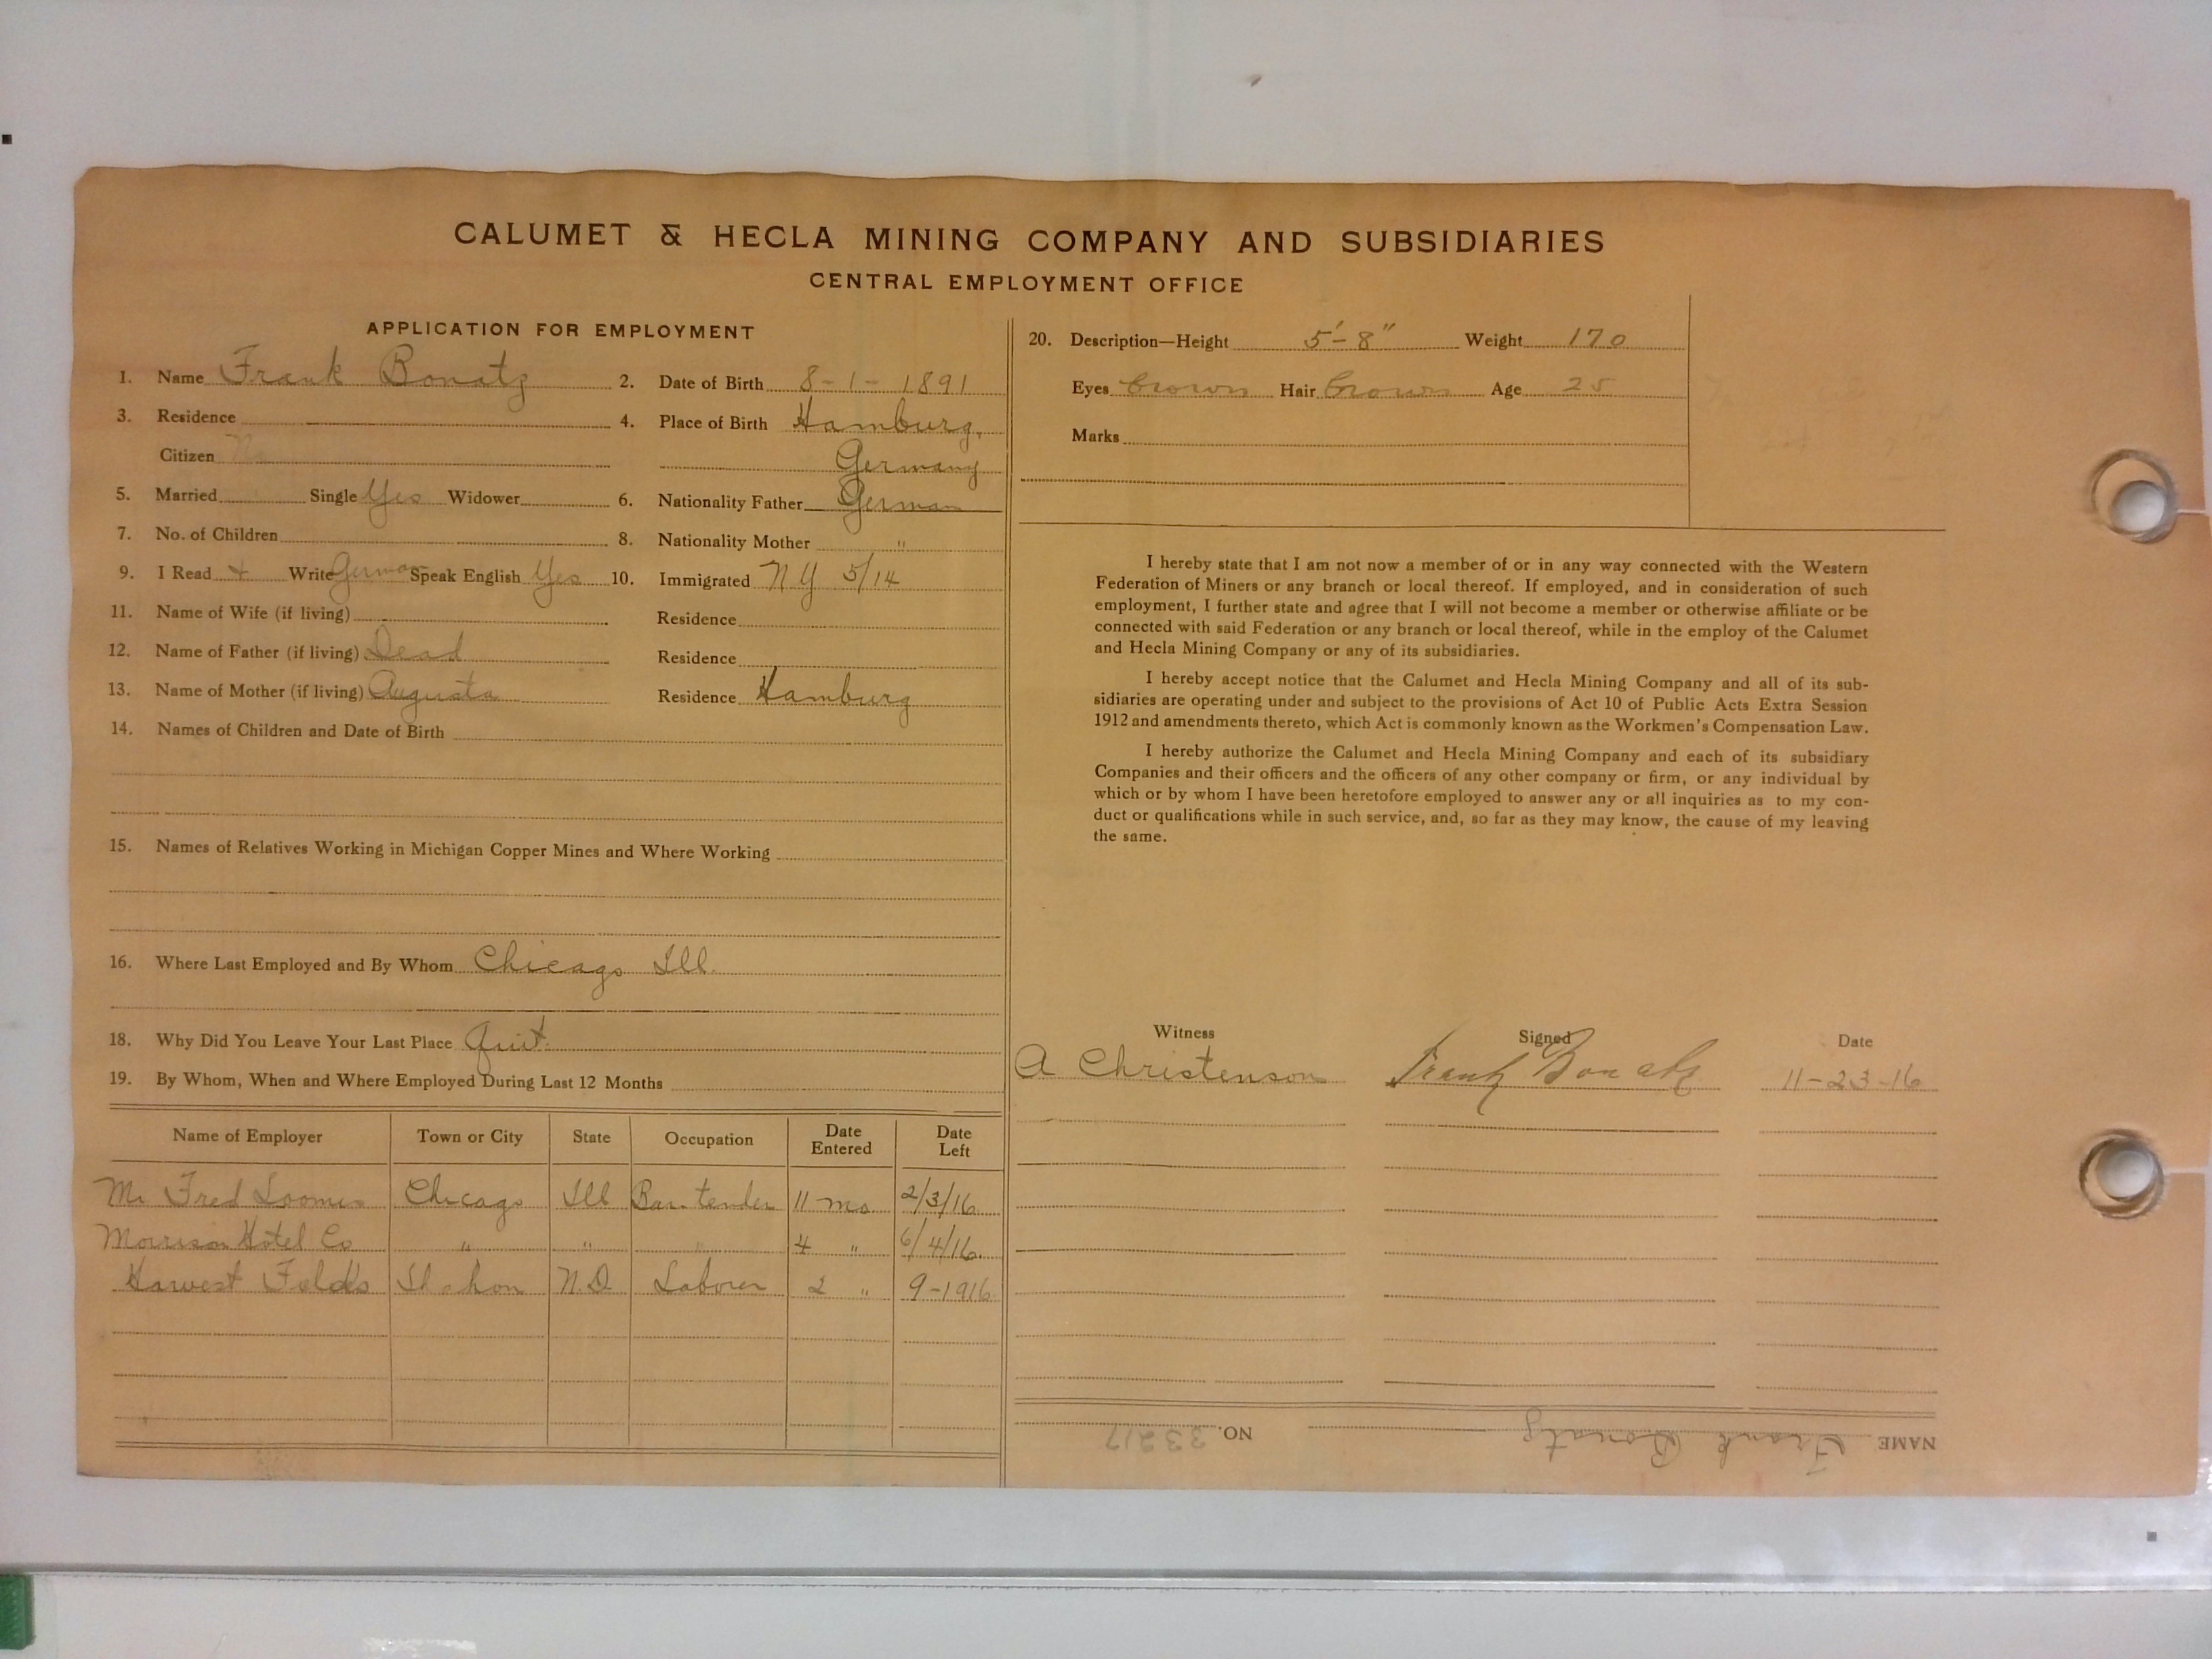 CALUMET & HECLA MINING COMPANY AND SUBSIDIARIES
CENTRAL EMPLOYMENT OFFICE
APPLICATION FOR EMPLOYMENT
1. Name Frank Bonatz 2. Date of Birth 8-1-1891
3. Residence 4. Place of Birth Hamburg,
Citizen No Germany
5. Married Single Yes Widower 6. Nationality Father German
7. No. of Children 8. Nationality Mother "
9. I Read + Write German Speak English Yes 10. Immigrated NY 5/14
11. Name of Wife (if living) Residence
12. Name of Father (if living) Dead Residence
13. Name of Mother (if living) Augusta Residence Hamburg
14. Names of Children and Date of Birth
15. Names of Relatives Working in Michigan Copper Mines and Where Working
16. Where Last Employed and By Whom Chicago Ill.
18. Why Did You Leave Your Last Place Quit.
19. By Whom, When and Where Employed During Last 12 Months
Name of Employer Town or City State Occupation Date Entered Date Left
Mr Fred Loomis Chicago Ill Bar-tender 11 mo 2/3/16
Morrison Hotel Co " " " 4 " 6/4/16.
Harvest Fields N.D. Laborer 2 " 9-1916
20. Description—Height 5'-8" Weight 170
Eyes brown Hair brown Age 25
Marks
I hereby state that I am not now a member of or in any way connected with the Western
Federation of Miners or any branch or local thereof. If employed, and in consideration of such
employment, I further state and agree that I will not become a member or otherwise affiliate or be
connected with said Federation or any branch or local thereof, while in the employ of the Calumet
and Hecla Mining Company or any of its subsidiaries.
I hereby accept notice that the Calumet and Hecla Mining Company and all of its sub-
sidiaries are operating under and subject to the provisions of Act 10 of Public Acts Extra Session
1912 and amendments thereto, which Act is commonly known as the Workmen's Compensation Law.
I hereby authorize the Calumet and Hecla Mining Company and each of its subsidiary
Companies and their officers and the officers of any other company or firm, or any individual by
which or by whom I have been heretofore employed to answer any or all inquiries as to my con-
duct or qualifications while in such service, and, so far as they may know, the cause of my leaving
the same.
Witness Signed Date
A Christenson Frank Bonatz 11-23-16
NAME Frank Bonatz NO. 33217